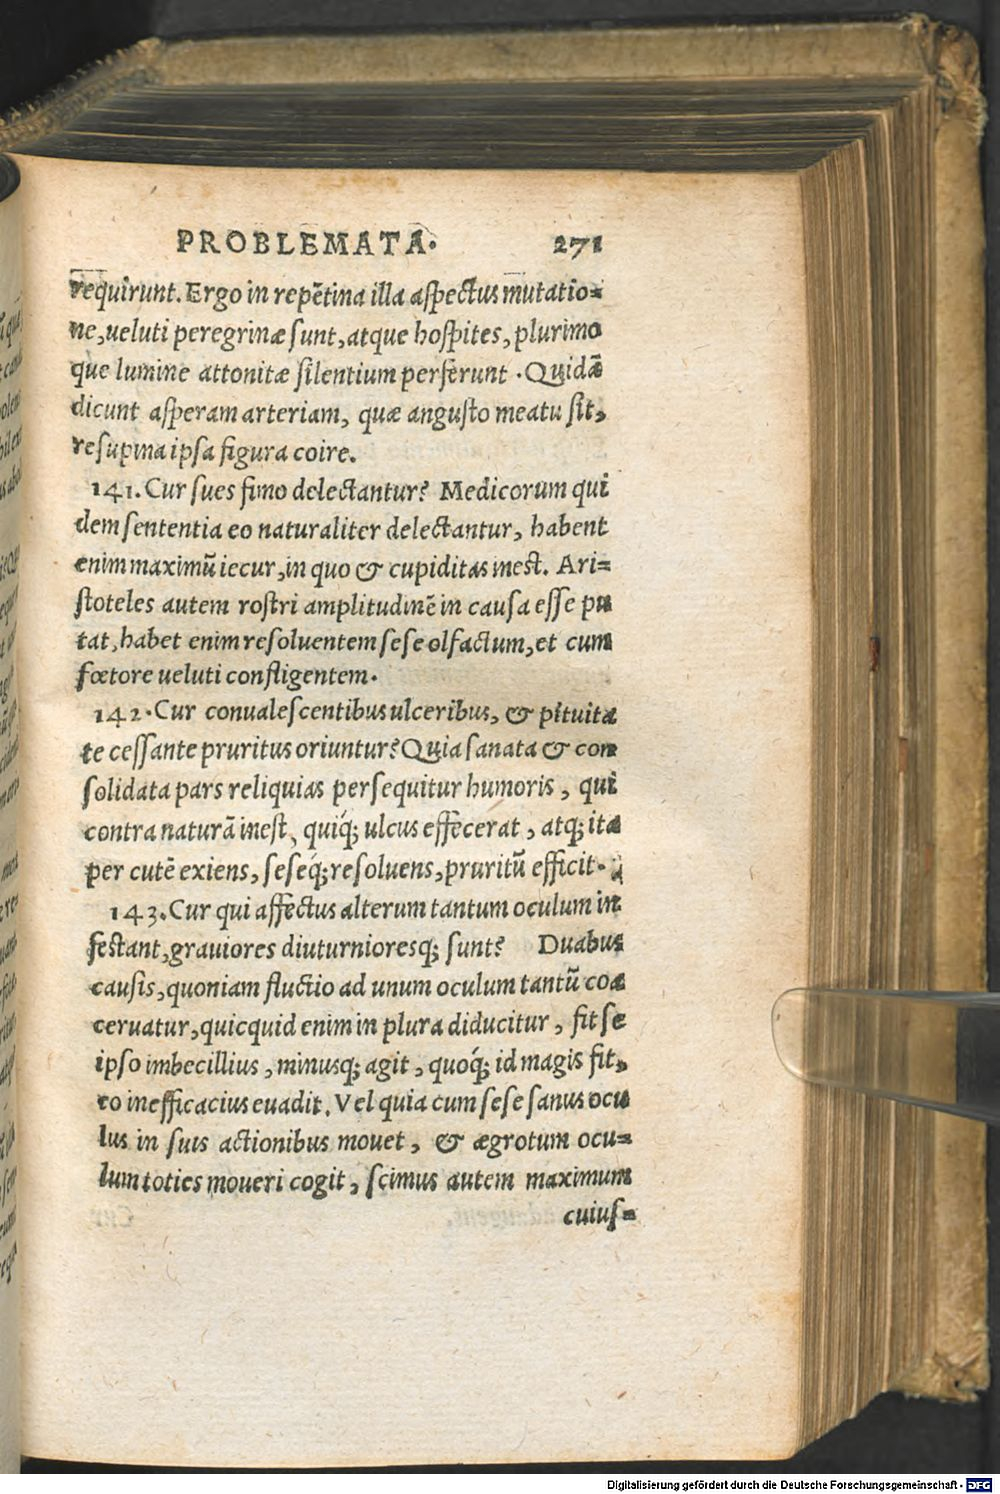 PROBLEMATA. 271
requirunt. Ergo in repẽtina illa aſpectus mutatio=
ne, ueluti peregrinæ ſunt, atque hoſpites, plurimo
que lumine attonitæ ſilentium perferunt. Quidã
dicunt aſperam arteriam, quæ anguſto meatu ſit,
reſupina ipſa figura coire.
141. Cur ſues fimo delectantur? Medicorum qui
dem ſententia eo naturaliter delectantur, habent
enim maximũ iecur, in quo & cupiditas ineſt. Ari=
ſtoteles autem roſtri amplitudinẽ in cauſa eſſe pu
tat, habet enim reſoluentem ſeſe olfactum, et cum
fœtore ueluti confligentem.
142. Cur conualeſcentibus ulceribus, & pituita
te ceſſante pruritus oriuntur? Quia ſanata & con
ſolidata pars reliquias perſequitur humoris, qui
contra naturã ineſt, quiq́; ulcus effecerat, atq; ita
per cutẽ exiens, ſeſeq́; reſoluens, pruritũ efficit.
143. Cur qui affectus alterum tantum oculum in
feſtant, grauiores diuturnioresq; ſunt? Duabus
cauſis, quoniam fluctio ad unum oculum tantũ coa
ceruatur, quicquid enim in plura diducitur, fit ſe
ipſo imbecillius, minusq; agit, quoq́; id magis fit,
eo inefficacius euadit. Vel quia cum ſeſe ſanus ocu
lus in ſuis actionibus mouet, & ægrotum ocu=
lum toties moueri cogit, ſcimus autem maximum
cuiuſ=
Digitalisierung gefördert durch die Deutsche Forschungsgemeinschaft - DFG